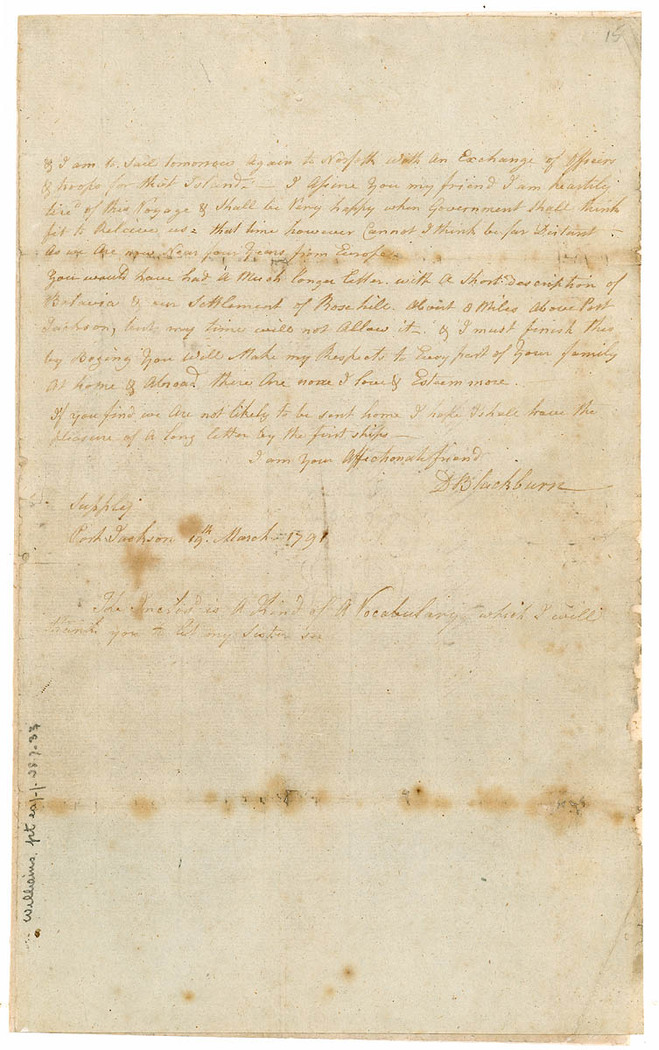 15
& I am to Sail tomorrow again to Norfolk with an Exchange of Officers
& troops for that Island — I Assure You my friend I am heartily
tired of this Voyage & Shall be Very happy when Government Shall think
fit to Relieve us = that time however Cannot I think be far Distant —
As we Are now Near four Years from Europe —
You would have had A Much longer letter with A Short description of
Batavia & our Settlement of Rosehill About 8 Miles Above Port
Jackson, but my time will not Allow it — & I must finish this
by Beging You Will Make my Respects to Every part of Your family
At home & Abroad there Are none I love & Esteem more.
If you find we Are not likely to be sent home I hope I shall have the
pleasure of A long letter by the first ships —
I am Your Affectionate friend
D Blackburn
Supply
Port Jackson 19th March 1791
The Inclos'd is A Kind of A Vocabulary which I will
thank you to let my Sister see
Williams, pt